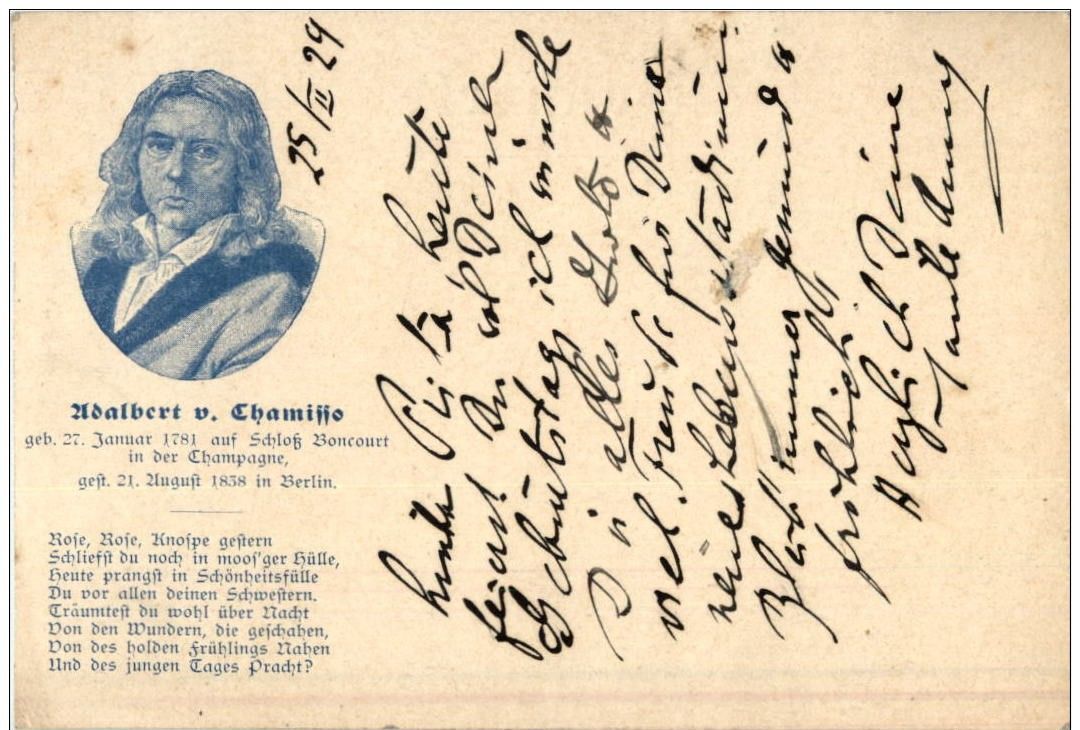 Adalbert v. Chamisso
geb. 27. Januar 1781 auf Schloß Boncourt
in der Champagne,
gest. 21. August 1838 in Berlin.
Rose, Rose, Knospe gestern
Schliefst du noch in moos'ger Hülle,
Heute prangst in Schönheitsfülle
Du vor allen deinen Schwestern.
Träumtest du wohl über Nacht
Von den Wundern, die geschahen,
Von des holden Frühlings Nahen
Und des jungen Tages Pracht?
25/II 29
heute
feierst Du Deinen
Geburtstag ich wünsche
Dir alles Gute u
viel Freude für Deine
neues Lebens
Bleib immer gesund u
fröhlich
Herzlich Deine
Tante Anny